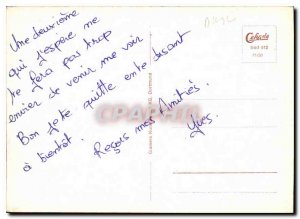 Une deuxième
qui j'espère me
te fera pas trop
envier de venir me voir
Bon je te quitte en te disant
à bientôt. Reçois mes Amitiés.
Yves.
Cekade